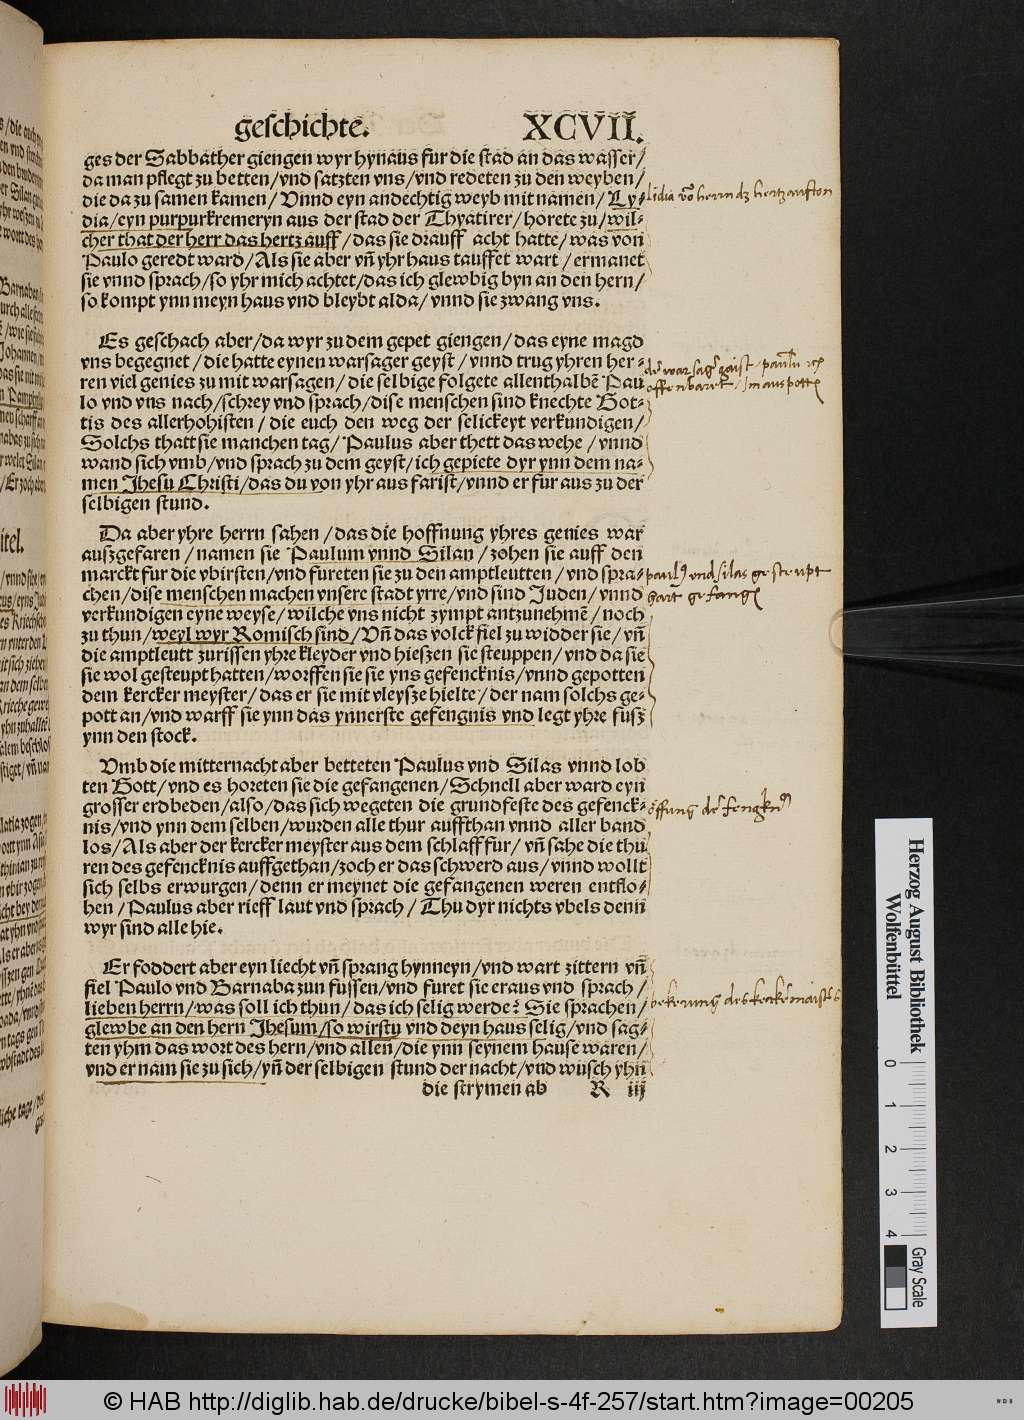 geschichte. XCVII.
ges der Sabbather giengen wyr hynaus fur die stad an das wasser/
da man pflegt zu betten/vnd satzten vns/vnd redeten zu den weyben/
die da zu samen kamen/ Vnnd eyn andechtig weyb mit namen/ Ly-
dia/eyn purpurkremeryn aus der stad der Thyatirer/horete zu/wil-
cher that der herr das hertz auff/das sie drauff acht hatte/was von
Paulo geredt ward/Als sie aber vn̄ yhr haus tauffet wart/ermanet
sie vnnd sprach/so yhr mich achtet/das ich glewbig byn an den hern/
so kompt ynn meyn haus vnd bleybt alda/vnnd sie zwang vns.
Es geschach aber/da wyr zu dem gepet giengen/das eyne magd
vns begegnet/die hatte eynen warsager geyst/vnnd trug yhren her-
ren viel genies zu mit warsagen/die selbige folgete allenthalbē Pau
lo vnd vns nach/schrey vnd sprach/dise menschen sind knechte Got-
tis des allerhohisten/die euch den weg der selickeyt verkundigen/
Solchs thatt sie manchen tag/Paulus aber thett das wehe/vnnd
wand sich vmb/vnd sprach zu dem geyst/ich gepiete dyr ynn dem na-
men Jhesu Christi/das du von yhr aus farist/vnnd er fur aus zu der
selbigen stund.
Da aber yhre herrn sahen/das die hoffnung yhres genies war
auszgefaren/namen sie Paulum vnnd Silan/zohen sie auff den
marckt fur die vbirsten/vnd fureten sie zu den amptleutten/vnd spra-
chen/dise menschen machen vnsere stadt yrre/vnd sind Juden/vnnd
verkundigen eyne weyse/wilche vns nicht zympt antzunehmē/noch
zu thun/weyl wyr Romisch sind/Vn̄ das volck fiel zu widder sie/vn̄
die amptleutt zurissen yhre kleyder vnd hieszen sie steuppen/vnd da sie
sie wol gesteupt hatten/worffen sie sie yns gefencknis/vnnd gepotten
dem kercker meyster/das er sie mit vleysze hielte/der nam solchs ge-
pott an/vnd warff sie ynn das ynnerste gefengnis vnd legt yhre fusz
ynn den stock.
Vmb die mitternacht aber betteten Paulus vnd Silas vnnd lob
ten Gott/vnd es horeten sie die gefangenen/Schnell aber ward eyn
grosser erdbeden/also/das sich wegeten die grundfeste des gefenck-
nis/vnd ynn dem selben/wurden alle thur auffthan vnnd aller band
los/Als aber der kercker meyster aus dem schlaff fur/vn̄ sahe die thu
ren des gefencknis auffgethan/zoch er das schwerd aus/vnnd wollt
sich selbs erwurgen/denn er meynet die gefangenen weren entflo-
hen/Paulus aber rieff laut vnd sprach/Thu dyr nichts vbels denn
wyr sind alle hie.
Er foddert aber eyn liecht vn̄ sprang hynneyn/vnd wart zittern vn̄
fiel Paulo vnd Barnaba zun fussen/vnd furet sie eraus vnd sprach/
lieben herrn/was soll ich thun/das ich selig werde? Sie sprachen/
glewbe an den hern Jhesum/so wirstu vnd deyn haus selig/vnd sag-
ten yhm das wort des hern/vnd allen/die ynn seynem hause waren/
vnd er nam sie zu sich/yn̄ der selbigen stund der nacht/vnd wusch yhn
die strymen ab R iij
paulus vnd silas gesteupt
hart gefangen
Herzog August Bibliothek
Wolfenbüttel
0 1 2 3 4
Gray Scale
© HAB http://diglib.hab.de/drucke/bibel-s-4f-257/start.htm?image=00205